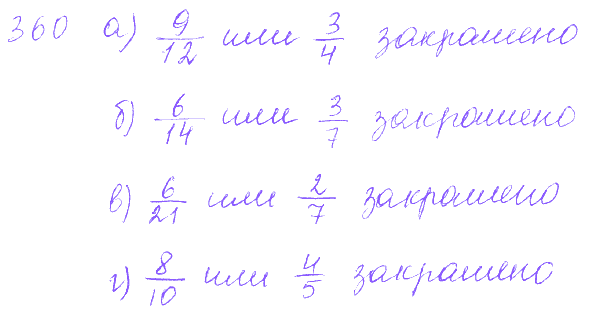 360 а) 9/12 или 3/4 закрашено
б) 6/14 или 3/7 закрашено
в) 6/21 или 2/7 закрашено
г) 8/10 или 4/5 закрашено